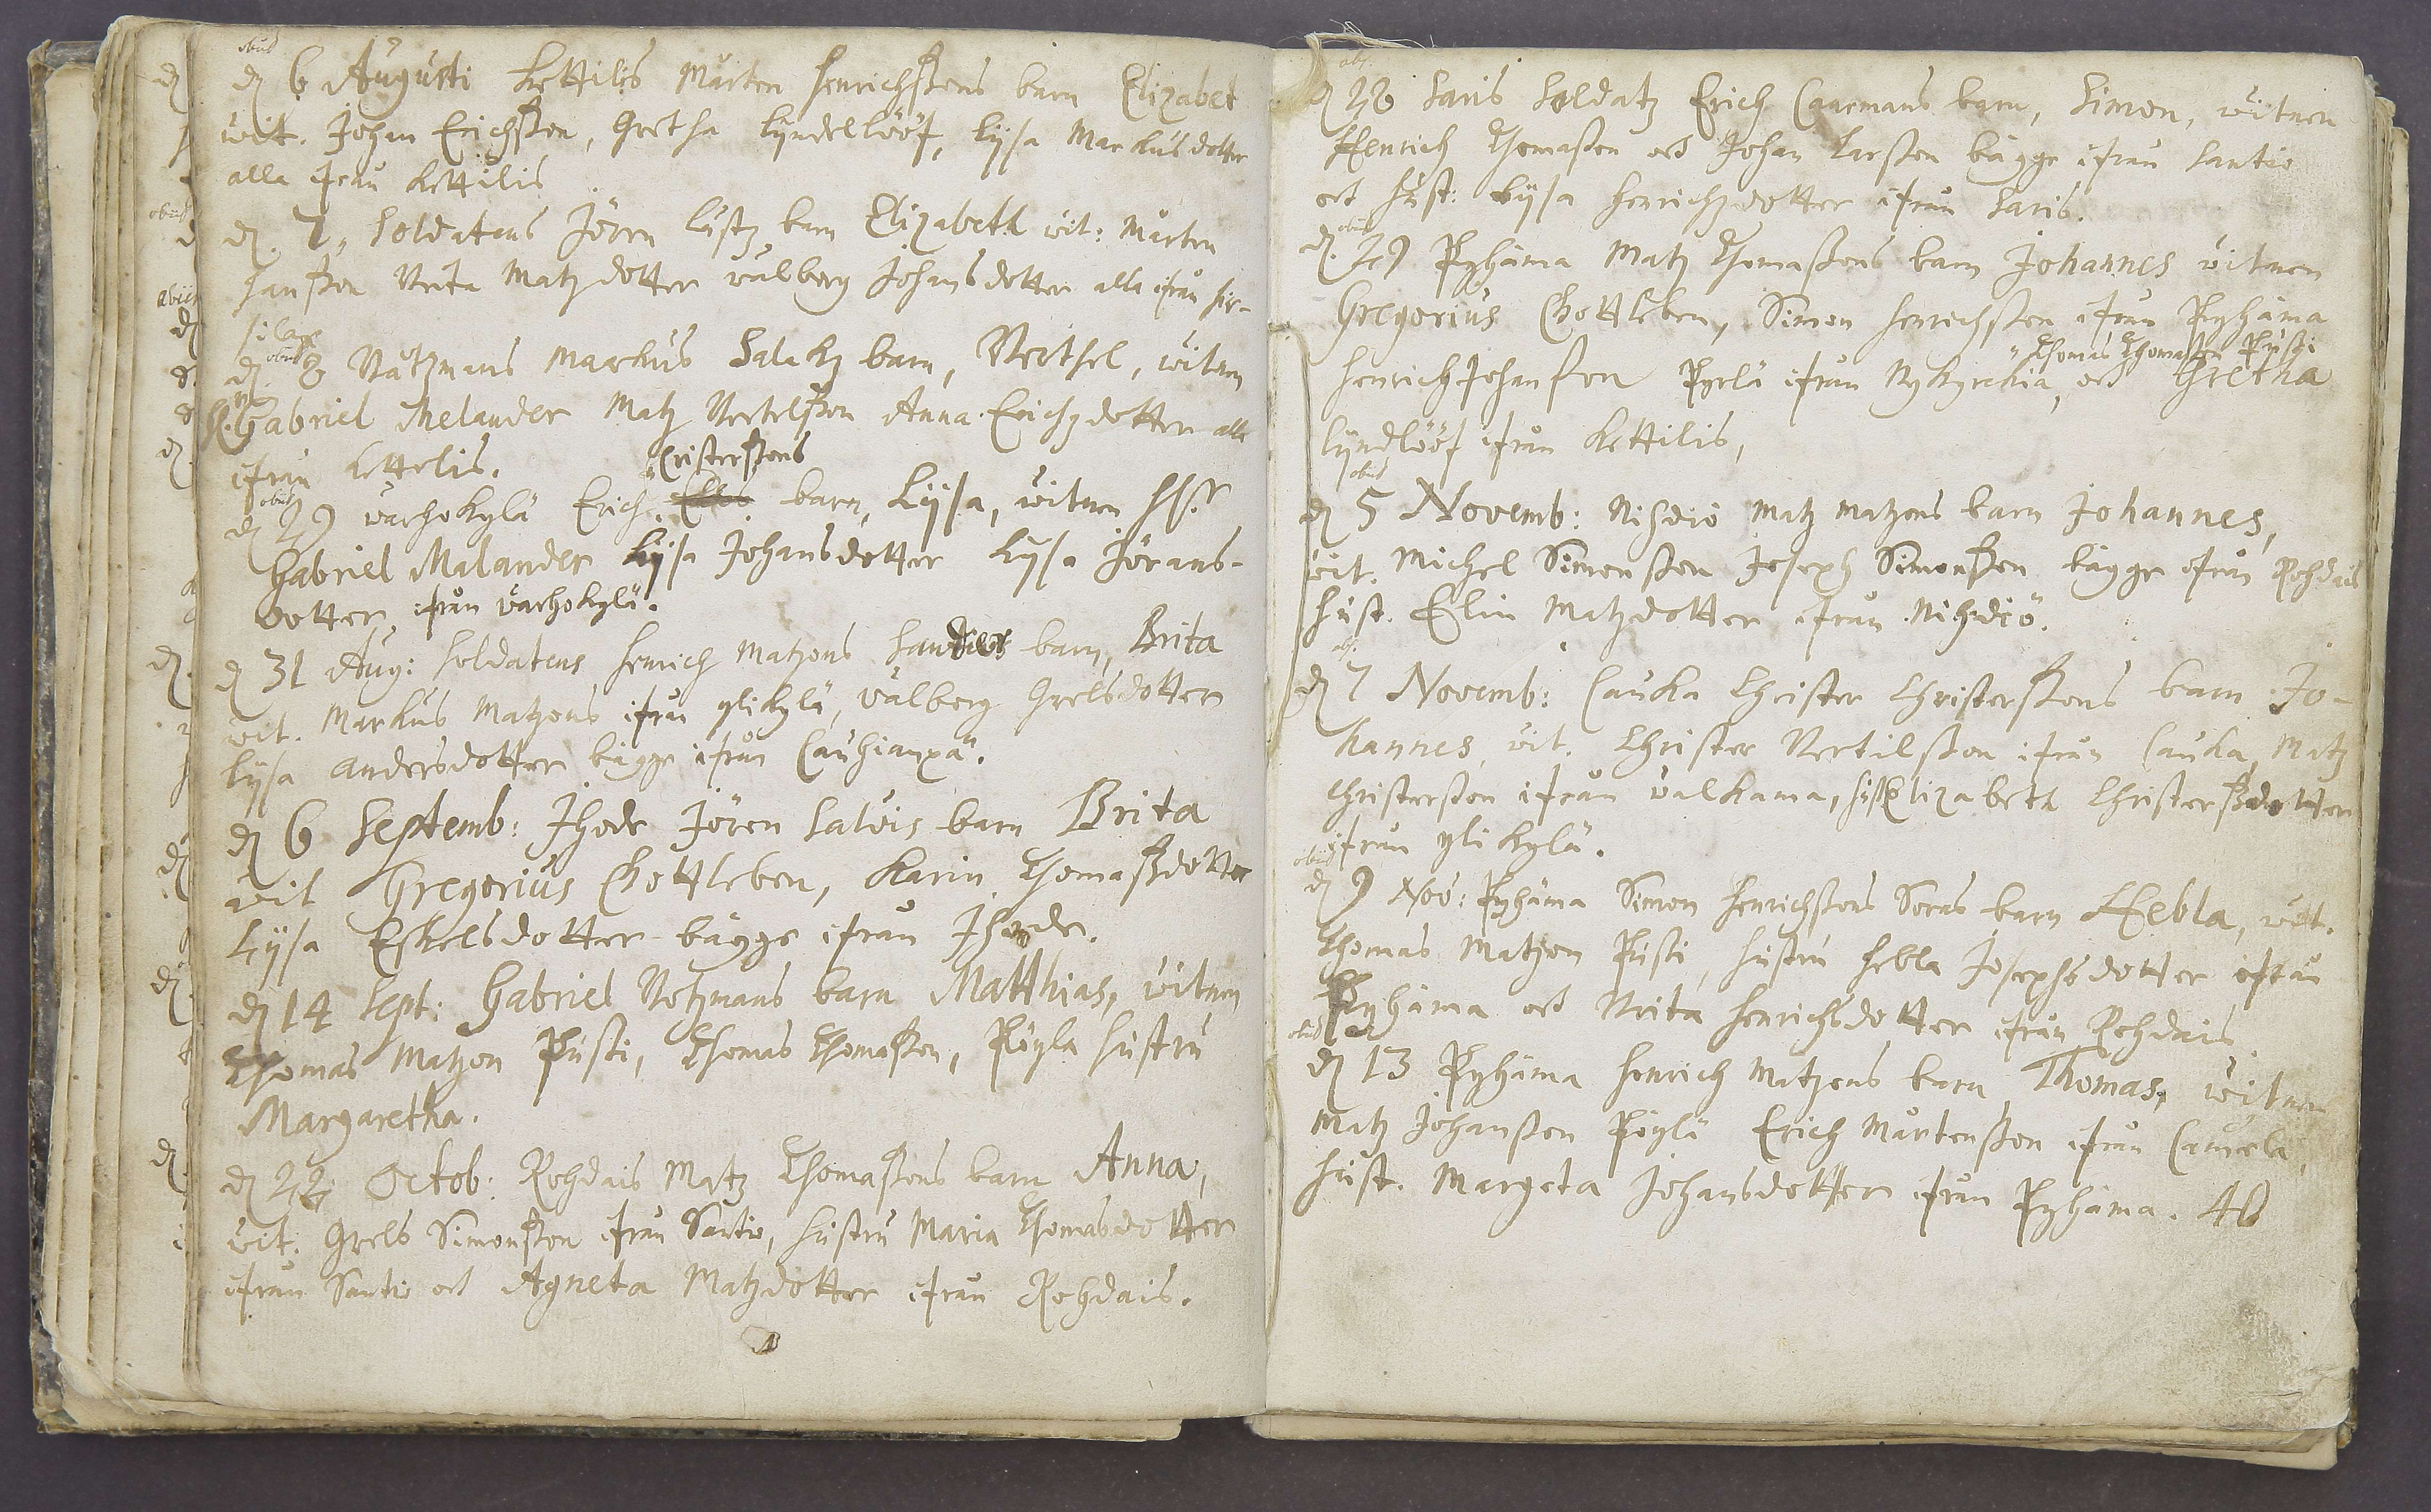 obiit
d. 6 Augusti Kettilis Mårten Henrichssons barn Elizabet
wit. Johan Erichsson, Gretha Lyndellööf, Lijsa Markusdotter
alla ifrån Kettilis
d. 7. Soldatens Jören Lustz barn Elizabeth wit: Mårten
Hansson Brita Matzdotter Walberg Johansdotter alla ifrån Hir-
silax
obiit
d. 8 Båtzmans Markus Salakz barn, Berthel, witnen
H. Gabriel Melander Matz Bertelsson Anna Erichzdotter alla
ifrån Kettelis.
Cristerssons
obiit
d. 29 Warhokylä Erich barn, Lijsa, witnen Hr
Gabriel Malander Lijsa Johansdotter Lijsa Jörans-
dotter, ifrån Warhokylä.
d. 31 Aug: Soldatens Henrich Matzons barn, Brita
wit. Markus Matzons ifrån Ylikylä, Walborg Grelsdotter
Lijsa Andersdotter bägge ifrån Cauhianpä.
d. 6 Septemb: Ihode Jören Salvis barn Brita
wit Gregorius Gottleben, Karin Thomassdotter
Lijsa Eskelsdotter bägge ifrån Ihode.
d. 14 Sept: Gabriel Botzmans barn Matthias, witnen
Thomas Matzon Pusti, Thomas Thomasson, Pöyla hustru
Margaretha.
d. 22 Octob: Rohdais Matz Thomassons barn Anna,
wit. Grels Simonsson ifrån Santio, hustru Maria Thomasdotter
ifrån Santio och Agneta Matzdotter ifrån Rohdais.
obs.
d. 28 Saris Soldatz Erich Caarmans barn, Simon, witnen
Henrich Thomasson och Johan Larsson bägge ifrån Santio
och hust: Lijsa Henrichzdotter ifrån Saris.
obiit
d. 29 Pyhäma Matz Thomassons barn Johannes witnen
Gregorius Gottleben, Simon Henrichsson ifrån Pyhäma
Thomas Thomasson Pusti
Henrich Johansson Pyrlä ifrån Nykyrckia, och Gretha
Lyndlööf ifrån Kettilis,
obiit
d. 5 Novemb: Nihdiö Matz Matzons barn Johannes,
wit. Michel Simonsson Joseph Simonsson bägge ifrån Rohdais
hust. Elin Matzdotter ifrån Nihdiö.
obs.
d. 7 Novemb: Cauka Christer Christerssons barn Jo-
hannes, wit. Christer Bertilsson ifrån Cauka, Matz
Christersson ifrån Walkama, hust Elizabeth Christersdotter
ifrån Ylikylä.
obiit
d. 9 Nov: Pyhäma Simon Henrichssons Soras barn Hebla, wit.
Thomas Matzon Pusti, hustru Hebla Josephsdotter ifrån
Pyhäma och Brita Henrichsdotter ifrån Rohdais
obiit
d. 13 Pyhäma Henrich Matzons barn Thomas, witnen
Matz Johansson Pöylä Erich Mårtensson ifrån Camela,
hust. Margeta Johansdotter ifrån Pyhäma. 46